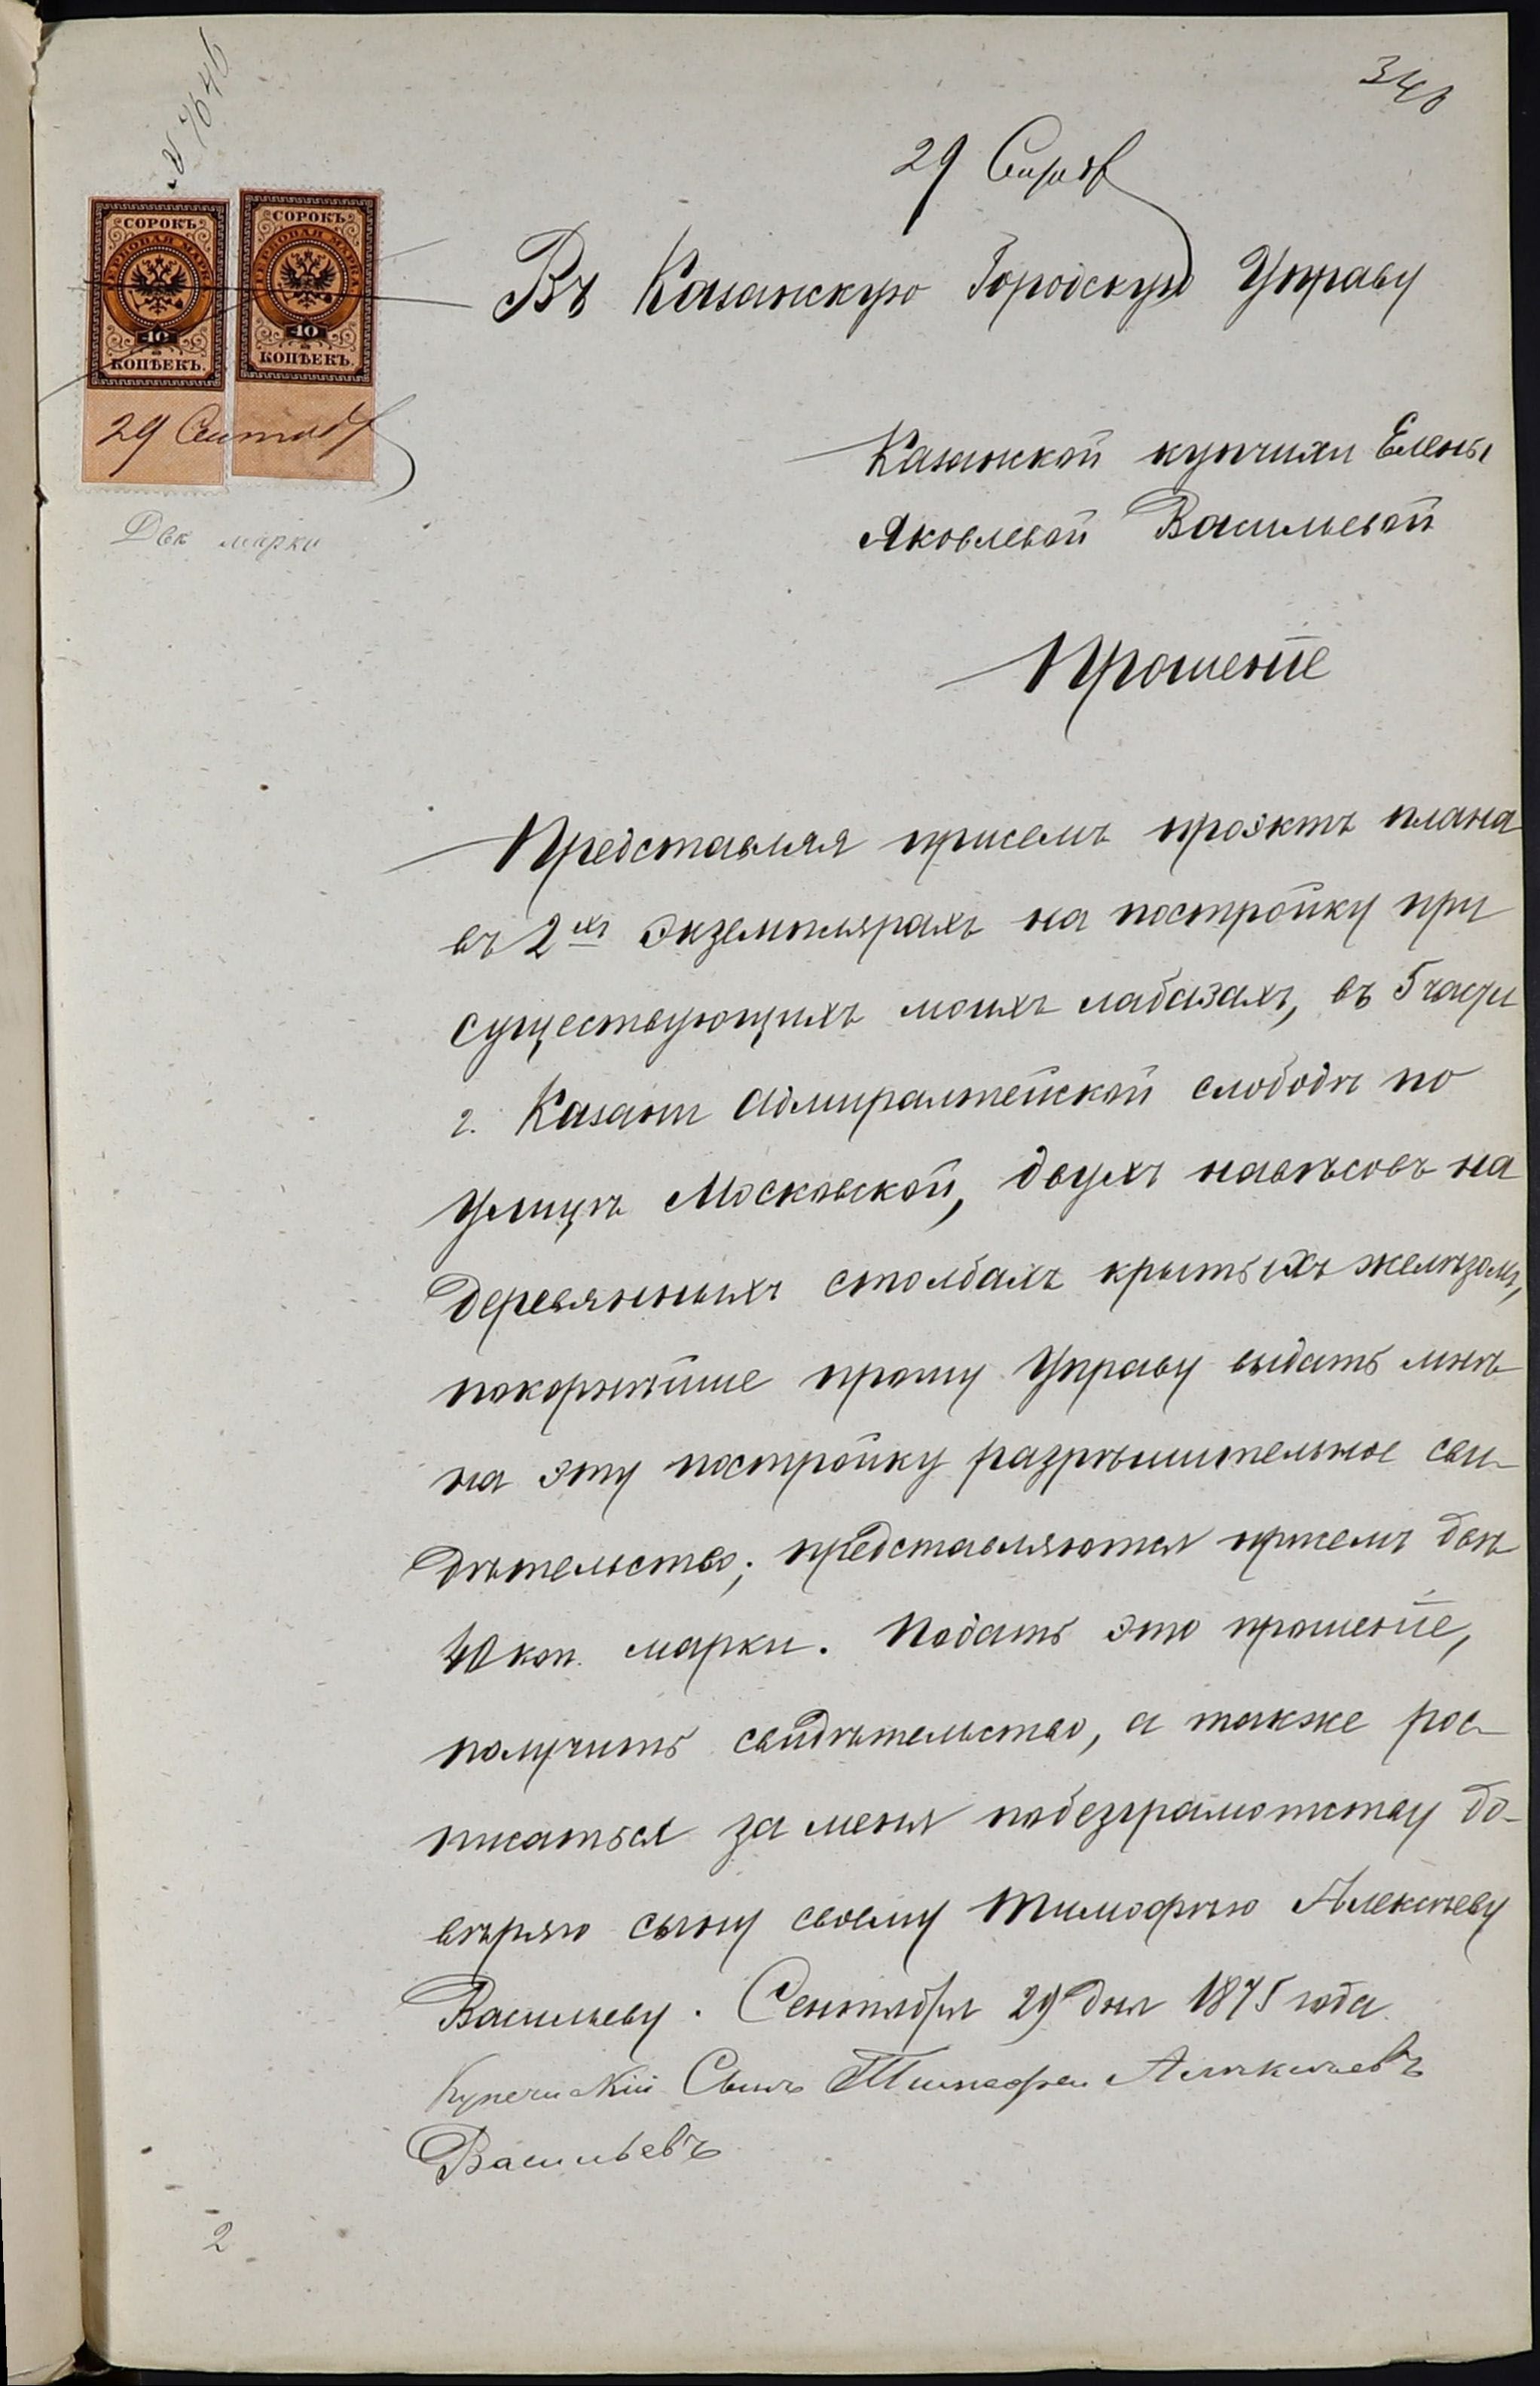 № 7646
29 Сентяб
СОРОКЪ
ГЕРБОВАЯ МАРКА
40
КОПѢЕКЪ.
СОРОКЪ
ГЕРБОВАЯ МАРКА
40
КОПѢЕКЪ.
29 Сентяб
Двѣ марки
Въ Казанскую Городскую Управу
Казанской купчихи Елены
Яковлевой Васильевой
Прошеніе
Представляя присемъ проэктъ плана
въ 2хъ экземплярахъ на постройку при
существующихъ моихъ лабазахъ, въ 5 части
г. Казани Адмиралтейской слободѣ по
улицѣ Московской, двухъ навѣсовъ на
деревянныхъ столбахъ крытыхъ желѣзомъ,
покорнѣйше прошу Управу выдать мнѣ
на эту постройку разрѣшительное сви-
дѣтельство; представляются присемъ двѣ
40 коп. марки. Подать это прошеніе,
получить свидѣтельство, а также рос-
писаться за меня побезграмотству до-
вѣряю сыну своему Тимофѣю Алексѣеву
Васильеву. Сентября 29 дня 1875 года
Купеческій Сынъ Тимофеи Алѣксѣевъ
Васильевъ
2